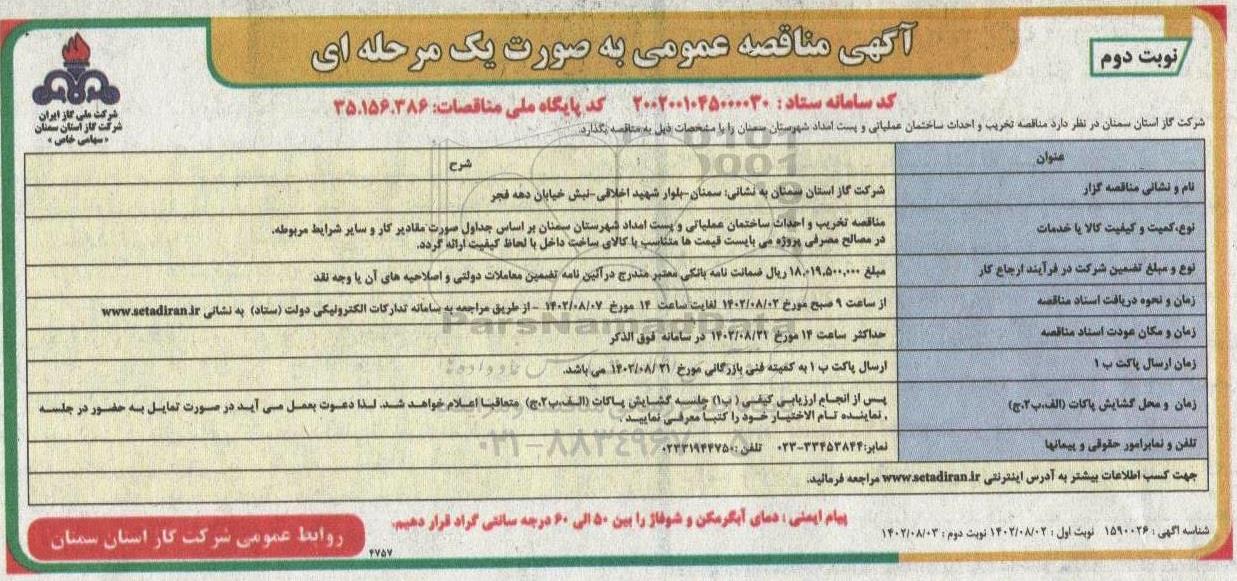 آگهی مناقصه عمومی به صورت یک مرحله ای
نوبت دوم
شرکت ملی گاز ایران
شرکت گاز استان سمنان
«سهامی خاص»
کد سامانه ستاد : ۲۰۰۲۰۰۱۰۴۵۰۰۰۰۳۰ کد پایگاه ملی مناقصات: ۳۵.۱۵۶.۳۸۶
شرکت گاز استان سمنان در نظر دارد مناقصه تخریب و احداث ساختمان عملیاتی و پست امداد شهرستان سمنان را با مشخصات ذیل به مناقصه بگذارد.
عنوان شرح
نام و نشانی مناقصه گزار شرکت گاز استان سمنان به نشانی: سمنان-بلوار شهید اخلاقی-نبش خیابان دهه فجر
نوع،کمیت و کیفیت کالا یا خدمات مناقصه تخریب و احداث ساختمان عملیاتی و پست امداد شهرستان سمنان بر اساس جداول صورت مقادیر کار و سایر شرایط مربوطه.
در مصالح مصرفی پروژه می بایست قیمت ها متناسب با کالای ساخت داخل با لحاظ کیفیت ارائه گردد.
نوع و مبلغ تضمین شرکت در فرآیند ارجاع کار مبلغ ۱۸.۰۱۹.۵۰۰.۰۰۰ ریال ضمانت نامه بانکی معتبر مندرج درآئین نامه تضمین معاملات دولتی و اصلاحیه های آن یا وجه نقد
زمان و نحوه دریافت اسناد مناقصه از ساعت ۹ صبح مورخ ۱۴۰۲/۰۸/۰۲ لغایت ساعت ۱۴ مورخ ۱۴۰۲/۰۸/۰۷ - از طریق مراجعه به سامانه تدارکات الکترونیکی دولت (ستاد) به نشانی www.setadiran.ir
زمان و مکان عودت اسناد مناقصه حداکثر ساعت ۱۴ مورخ ۱۴۰۲/۰۸/۲۱ در سامانه فوق الذکر
زمان ارسال پاکت ب ۱ ارسال پاکت ب ۱ به کمیته فنی بازرگانی مورخ ۱۴۰۲/۰۸/۲۱ می باشد.
زمان و محل گشایش پاکات (الف،ب۲،ج) پس از انجام ارزیابی کیفی ( ب۱) جلسه گشایش پاکات (الف،ب۲،ج) متعاقبا اعلام خواهد شد. لذا دعوت بعمل می آید در صورت تمایل به حضور در جلسه
، نماینده تام الاختیار خود را کتبا معرفی نمایید .
تلفن و نمابرامور حقوقی و پیمانها نمابر:۳۳۴۵۳۸۴۴-۰۲۳ تلفن:۰۲۳۳۱۹۴۴۷۵۰
جهت کسب اطلاعات بیشتر به آدرس اینترنتی www.setadiran.ir مراجعه فرمائید.
پیام ایمنی : دمای آبگرمکن و شوفاژ را بین ۵۰ الی ۶۰ درجه سانتی گراد قرار دهیم.
شناسه آگهی : ۱۵۹۰۰۲۶ نوبت اول : ۱۴۰۲/۰۸/۰۲ نوبت دوم : ۱۴۰۲/۰۸/۰۳
روابط عمومی شرکت گاز استان سمنان
۴۷۵۷
ParsNamadData